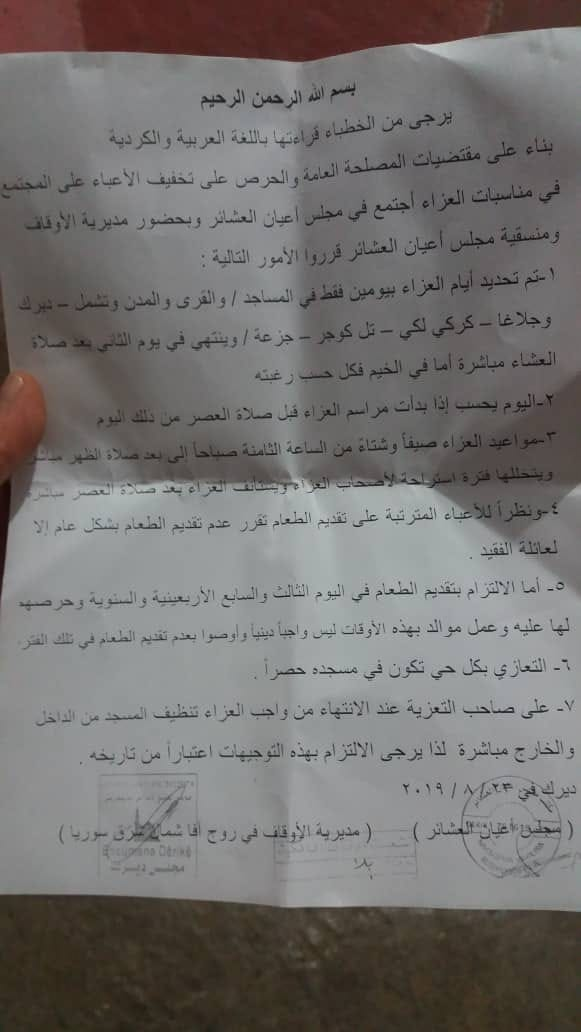 بسم الله الرحمن الرحيم
يرجى من الخطباء قراءتها باللغة العربية والكردية
بناء على مقتضيات المصلحة العامة والحرص على تخفيف الأعباء على المجتمع
في مناسبات العزاء أجتمع في مجلس أعيان العشائر وبحضور مديرية الأوقاف
ومنسقية مجلس أعيان العشائر قرروا الأمور التالية :
١-تم تحديد أيام العزاء بيومين فقط في المساجد / والقرى والمدن وتشمل – ديرك
وجلاغا – كركي لكي – تل كوجر – جزعة / وينتهي في يوم الثاني بعد صلاة
العشاء مباشرة أما في الخيم فكل حسب رغبته
٢-اليوم يحسب إذا بدأت مراسم العزاء قبل صلاة العصر من ذلك اليوم
٣-مواعيد العزاء صيفاً وشتاءً من الساعة الثامنة صباحاً الى بعد صلاة الظهر مباشر
ويتخللها فترة استراحة لأصحاب العزاء ويستأنف العزاء بعد صلاة العصر مباشر
٤-ونظراً للأعباء المترتبة على تقديم الطعام تقرر عدم تقديم الطعام بشكل عام إلا
لعائلة الفقيد .
٥- أما الالتزام بتقديم الطعام في اليوم الثالث والسابع الأربعينية والسنوية وحرصهم
لها عليه وعمل موالد بهذه الأوقات ليس واجباً دينياً وأوصوا بعدم تقديم الطعام في تلك الفتر
٦- التعازي بكل حي تكون في مسجده حصراً .
٧- على صاحب التعزية عند الانتهاء من واجب العزاء تنظيف المسجد من الداخل
والخارج مباشرة لذا يرجى الالتزام بهذه التوجيهات اعتباراً من تاريخه .
ديرك في ٢٣ / ٨ / ٢٠١٩
( مجلس أعيان العشائر ) ( مديرية الأوقاف في روج آفا شمال شرق سوريا )
Encumena Dêrikê
مجلس ديرك